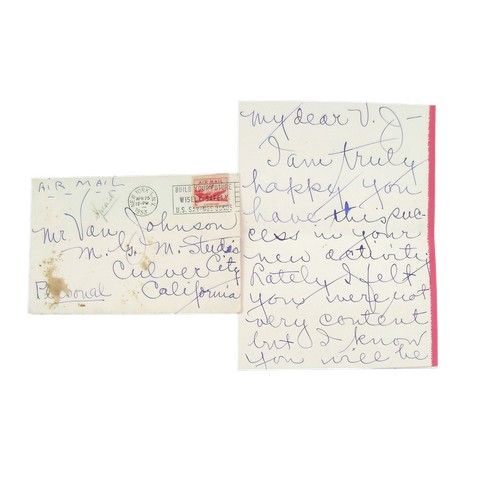 AIR MAIL
NEW YORK, N.Y.
APR 25
1953
BUILD YOUR FUTURE
WISELY SAFELY
U.S. SAVINGS BONDS
AIR MAIL
Mr. Van Johnson
M. G. M. Studios
Culver City
Personal California
My dear V. J—
I am truly
happy you
have this suc-
cess in your
new activity.
Lately I felt
you were not
very content
but I know
you will be